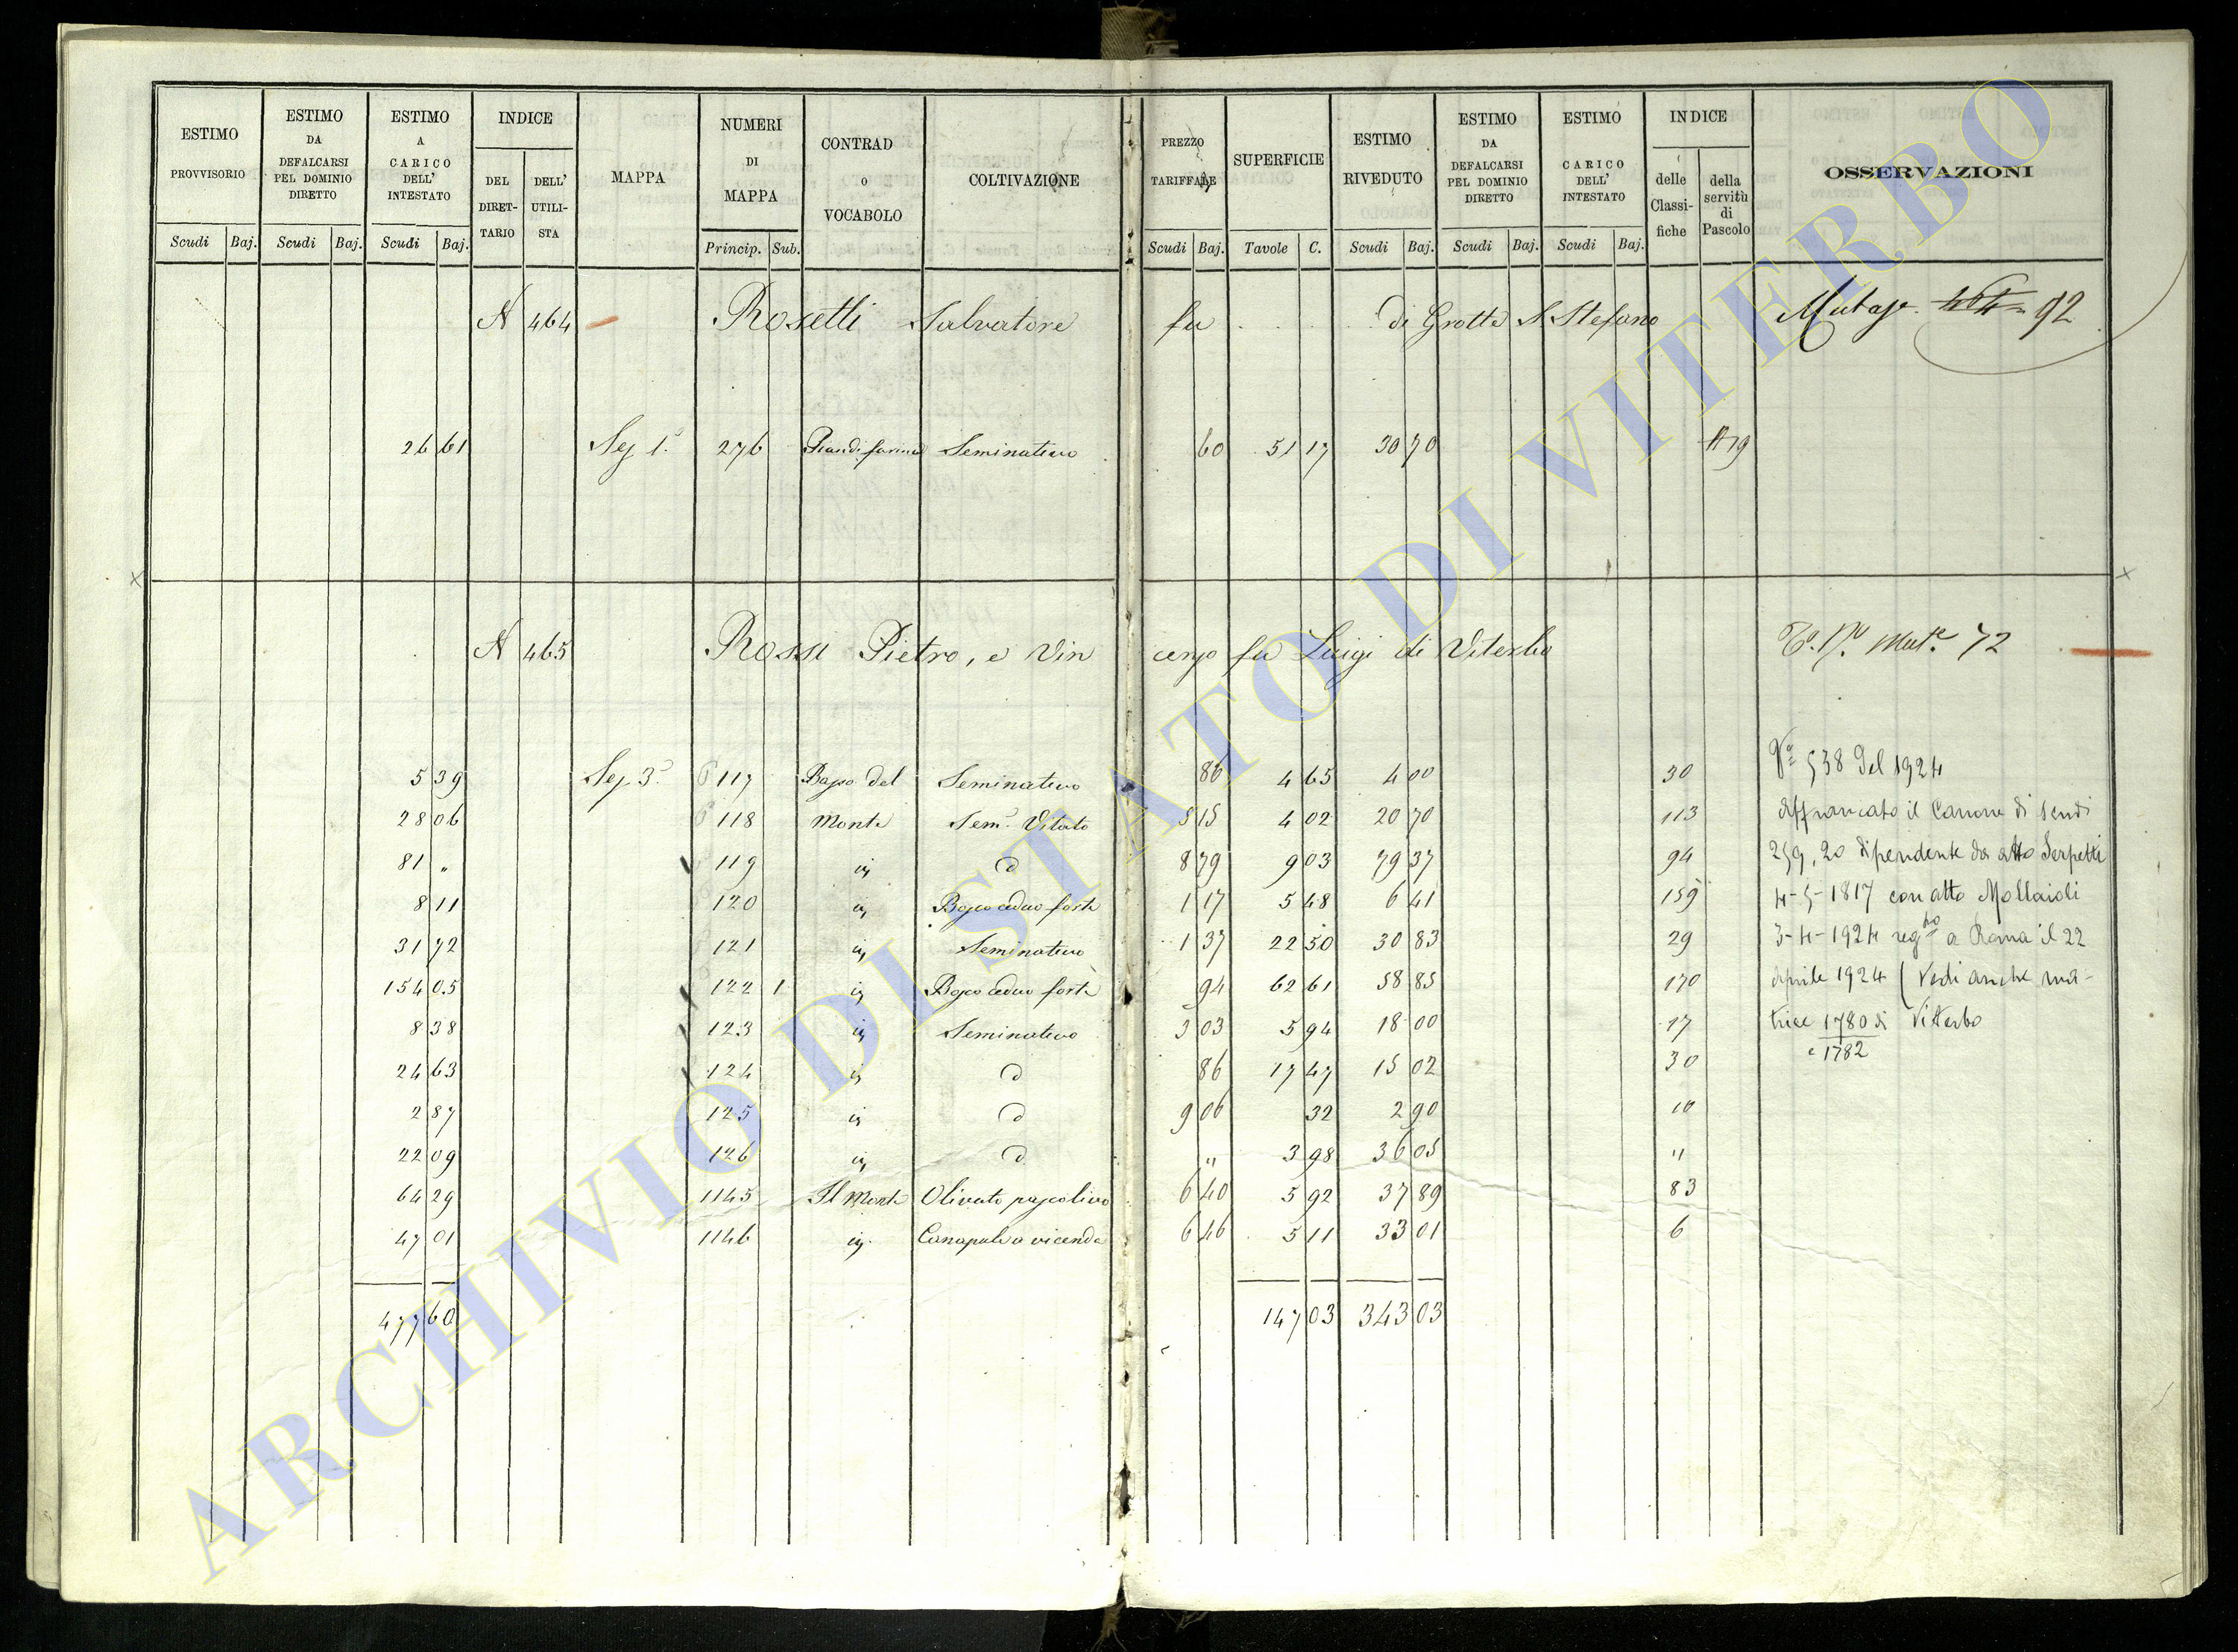 ESTIMO PROVVISORIO
ESTIMO DA DEFALCARSI PEL DOMINIO DIRETTO
ESTIMO A CARICO DELL' INTESTATO
INDICE
DEL DIRET- TARIO
DELL' UTILI- STA
MAPPA
NUMERI DI MAPPA
CONTRAD o VOCABOLO
COLTIVAZIONE
PREZZO TARIFFALE
SUPERFICIE
ESTIMO RIVEDUTO
ESTIMO DA DEFALCARSI PEL DOMINIO DIRETTO
ESTIMO CARICO DELL' INTESTATO
INDICE
delle Classi- fiche
della servitù di Pascolo
OSSERVAZIONI
Scudi Baj. Scudi Baj. Scudi Baj. Princip. Sub. Scudi Baj. Tavole C. Scudi Baj. Scudi Baj. Scudi Baj.
N 464 Rosetti Salvatore fu di Grotte S. Stefano 92
26 61 Sez 1ª 276 Seminativo 60 51 17 30 70 19
N 465 Rossi Pietro, e Vin cenzo fu Luigi di Viterbo 72
538 del 1924
5 39 Sez 3ª 117 Basso del Seminativo 86 4 65 4 00 30
28 06 118 Monte Sem. Vitato 5 15 4 02 20 70 113 Affrancato il Canone di Scudi
81 „ 119 id d 8 79 9 03 79 37 94 259,20 dipendente da atto Serpetti
8 11 120 id Bosco ceduo forte 1 17 5 48 6 41 159 4-5-1817 con atto Mollaioli
31 72 121 id Seminativo 1 37 22 50 30 83 29 3-4-1924 reg to a Roma il 22
154 05 122 1 id Bosco ceduo forte 94 62 61 58 85 170 aprile 1924 (Vedi anche ma-
8 38 123 id Seminativo 3 03 5 94 18 00 17 trice 1780 di Viterbo
e 1782
24 63 124 id d 86 17 47 15 02 30
2 87 125 id d 9 06 32 2 90 10
22 09 126 id d „ 3 98 36 05 "
64 29 1145 Il Monte Olivato pascolivo 6 40 5 92 37 89 83
47 01 1146 id. Canapule a vicenda 6 46 5 11 33 01 6
477 60 147 03 343 03
ARCHIVIO DI STATO DI VITERBO